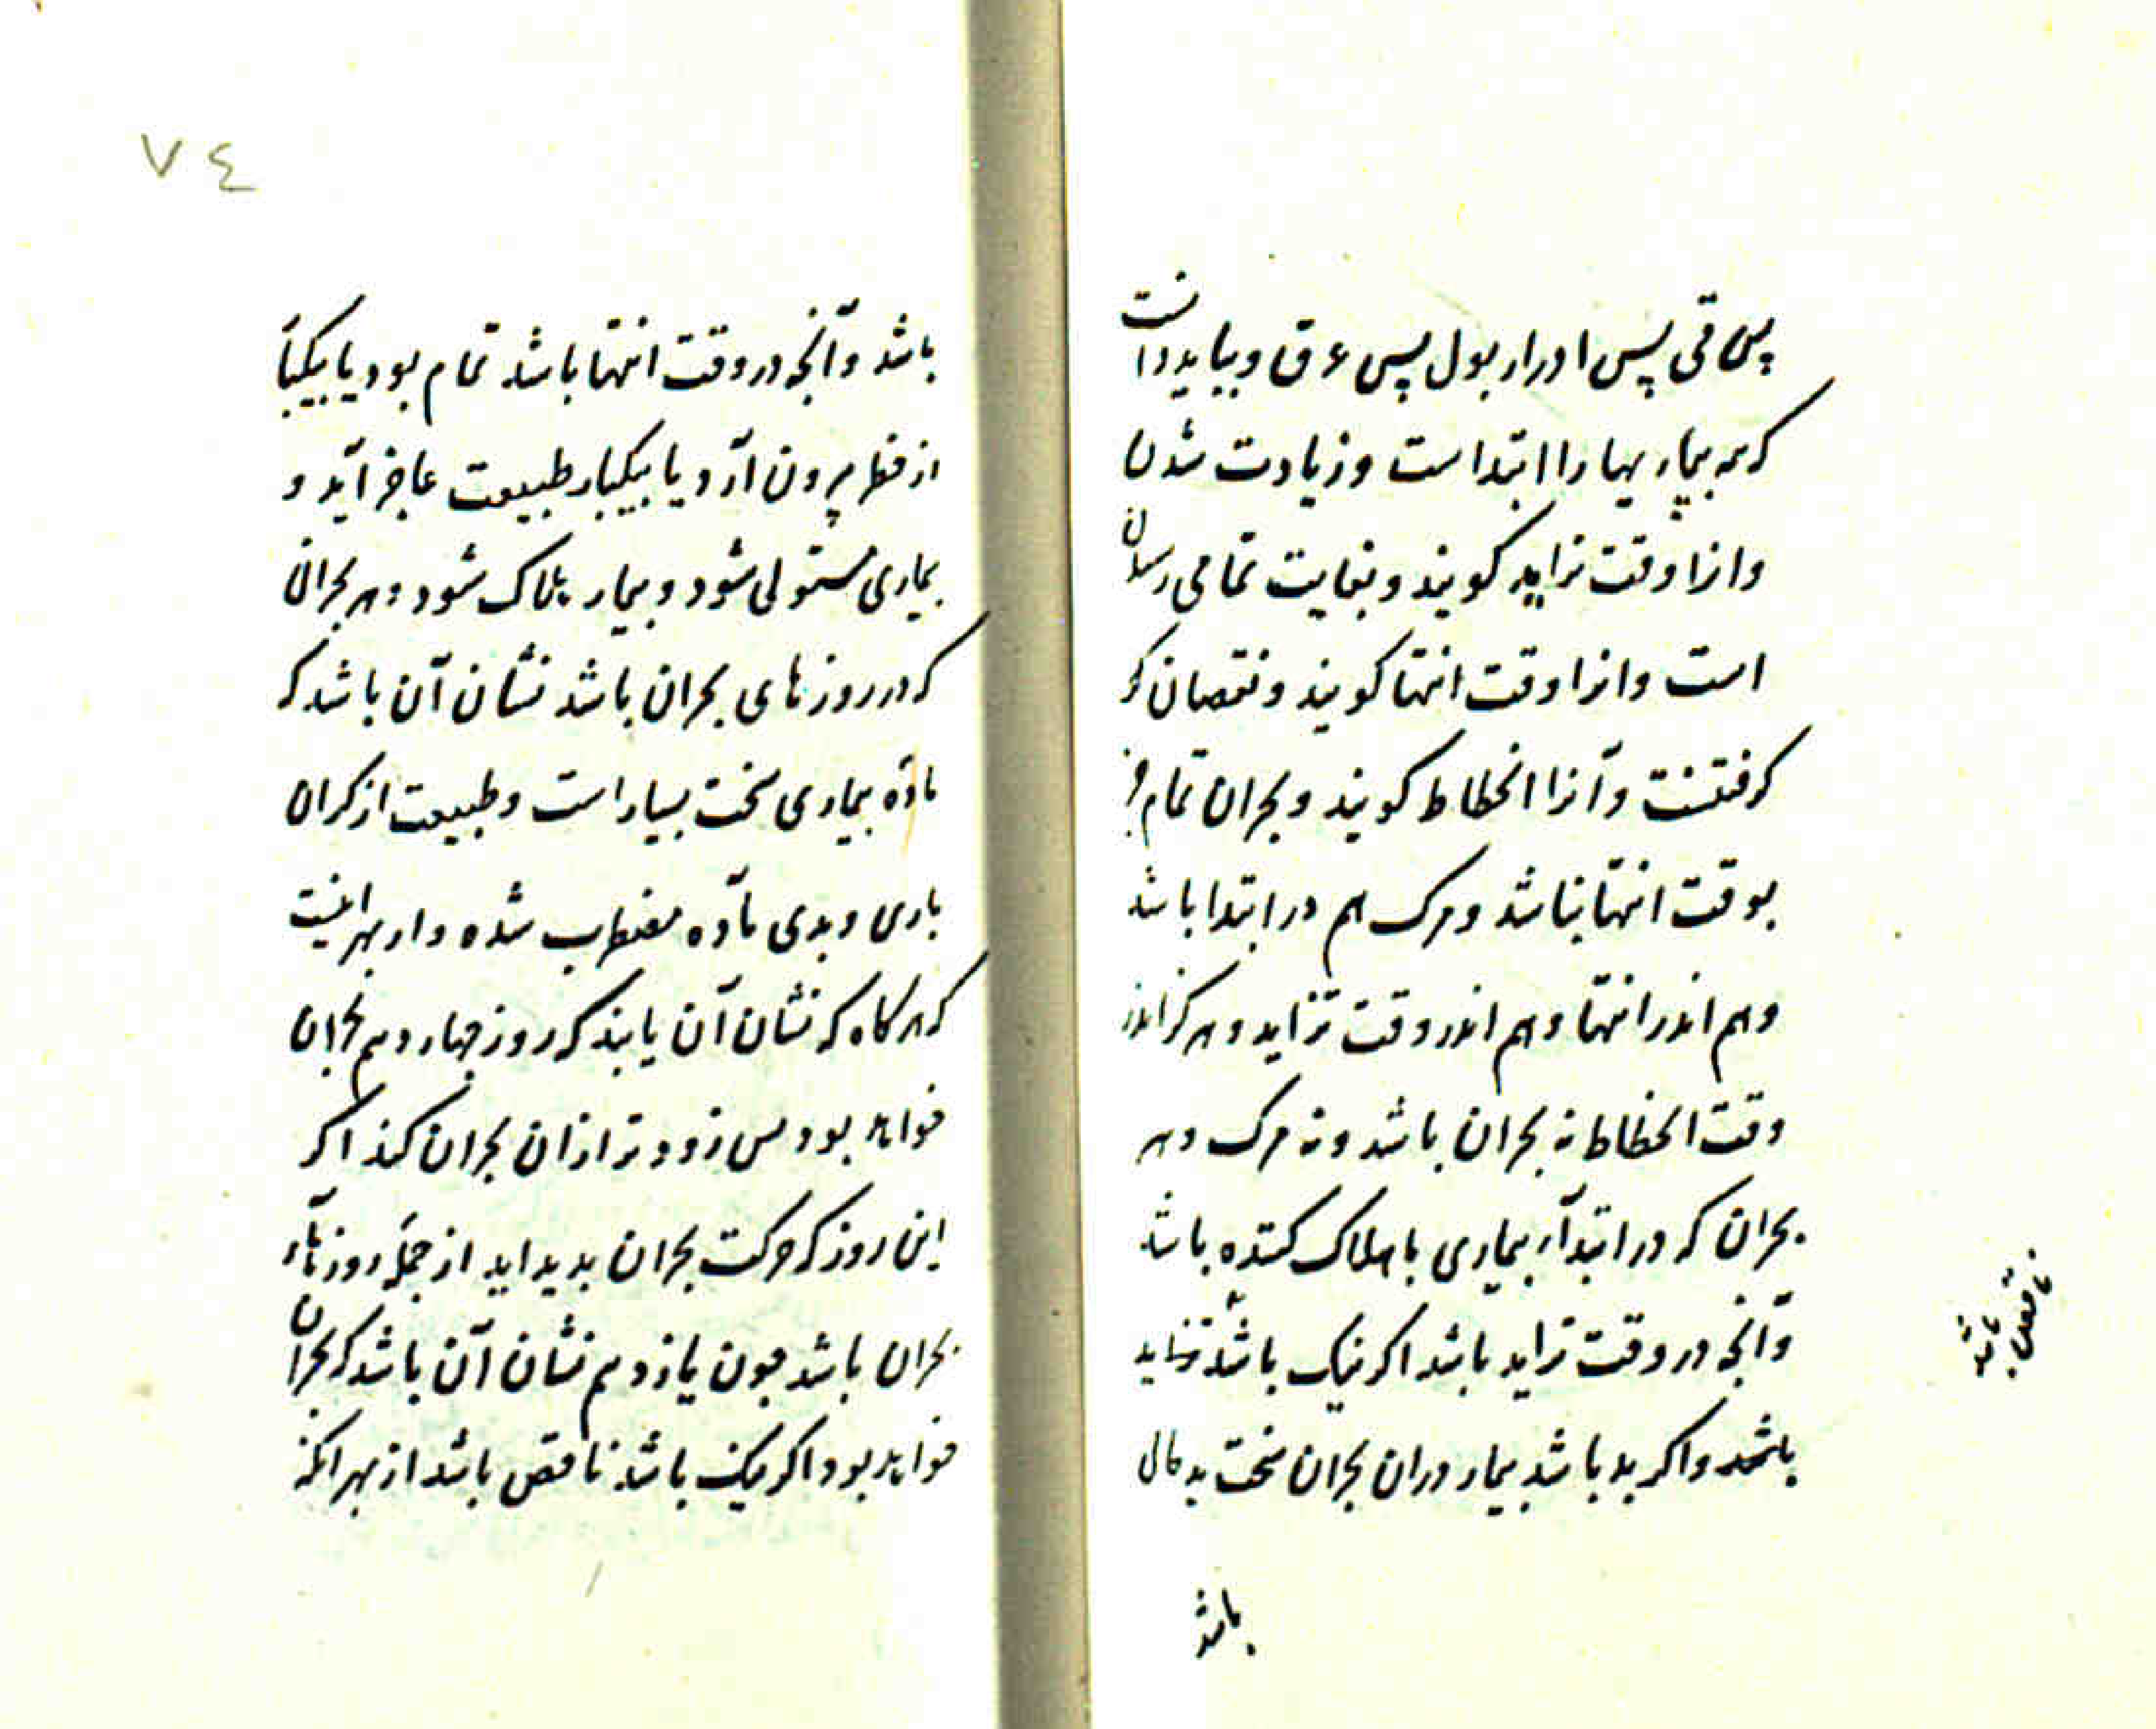 پس قی پس ادرار بول پس عرق و بباید دانست
که همه بیماریها را ابتداست و زیادت شدن
و انرا وقت تزاید کویند و بغایت تمامی رسیدن
است و انرا وقت انتها کویند و نقصان
کرفتنست و آنرا انحطاط کویند و بحران تمام جز
بوقت انتها نباشد و مرک هم در ابتدا باشد
و هم اندر انتها و هم اندر وقت تزاید و هرکز اندر
وقت انحطاط نه بحران باشد و نه مرک و هر
بحران که در ابتدآء بیماری با هلاک کننده باشد
و آنچه در وقت تزاید باشد اکر نیک باشد
باشد و اکر بد باشد بیمار دران بحران سخت بدحال
باشد
ناقص باشد
٧٤
باشد و آنچه در وقت انتها باشد تمام بود یا بیکبار
از خطر بیرون آرد یا بیکبار طبیعت عاجز آید و
بیماری مستولی شود و بیمار هلاک شود و هر بحران
که در روزهای بحران باشد نشان آن باشد که
مادّه بیماری سخت بسیار است و طبیعت از کران
باری و بدی مادّه مضطرب شده و از بهر اینست
که هرکاه که نشان آن یابند که روز چهاردهم بحران
خواهد بود پس زودتر ازان بحران کند اکر
این روز که حرکت بحران پدید اید از جمله روزهآء
بحران باشد چون یازدهم نشان آن باشد که بحران
خواهد بود اکر نیک باشد ناقص باشد از بهر انکه